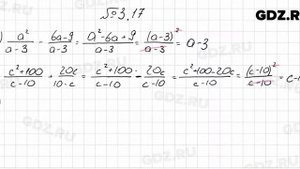 GDZ.RU
№3.17
) a²/(a-3) - (6a-9)/(a-3) = (a²-6a+9)/(a-3) = (a-3)²/(a-3) = a-3
(c²+100)/(c-10) + 20c/(10-c) = (c²+100)/(c-10) - 20c/(c-10) = (c²+100-20c)/(c-10) = (c-10)²/(c-10) = c-
GDZ.RU